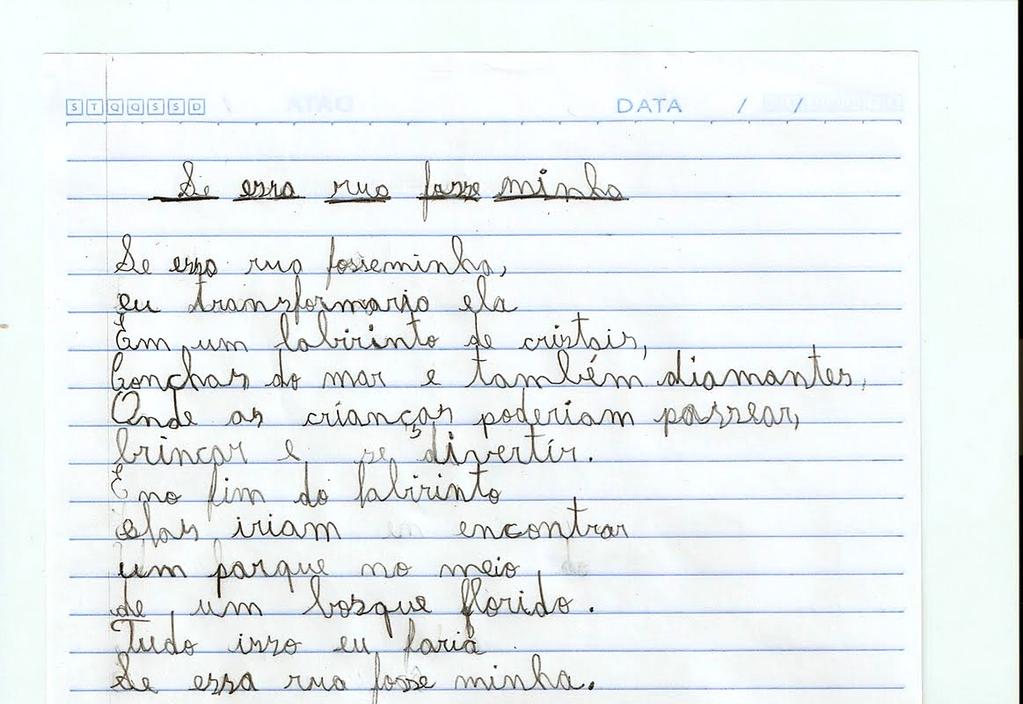 S T Q Q S S D DATA / /
Se essa rua fosse minha
Se essa rua fosseminha,
eu transformario ela
Em um labirinto de cristais,
Conchas do mar e também diamantes,
Onde as crianças poderiam passear,
brincar e se divertir.
E no fim do labirinto
elas iriam encontrar
um parque no meio
de um bosque florido.
Tudo isso eu faria
Se essa rua fosse minha.